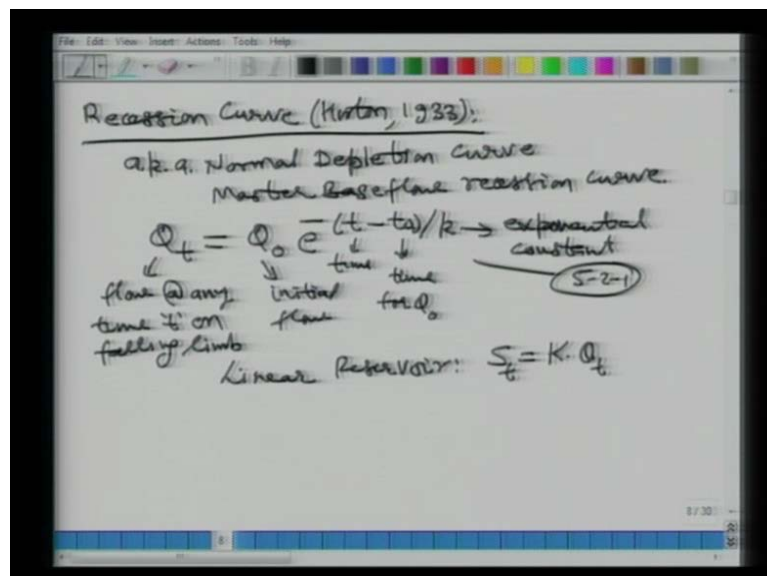 File Edit View Insert Actions Tools Help
Recession Curve (Horton, 1933):
a.k.a. Normal Depletion Curve
Master Baseflow recession curve.
Q_t = Q_0 e^-(t-t_0)/k → exponential constant
flow @ any time 't' on falling limb
initial flow
time
time for Q_0
5-2-1
Linear Reservoir: S_t = K. Q_t
8/30
8